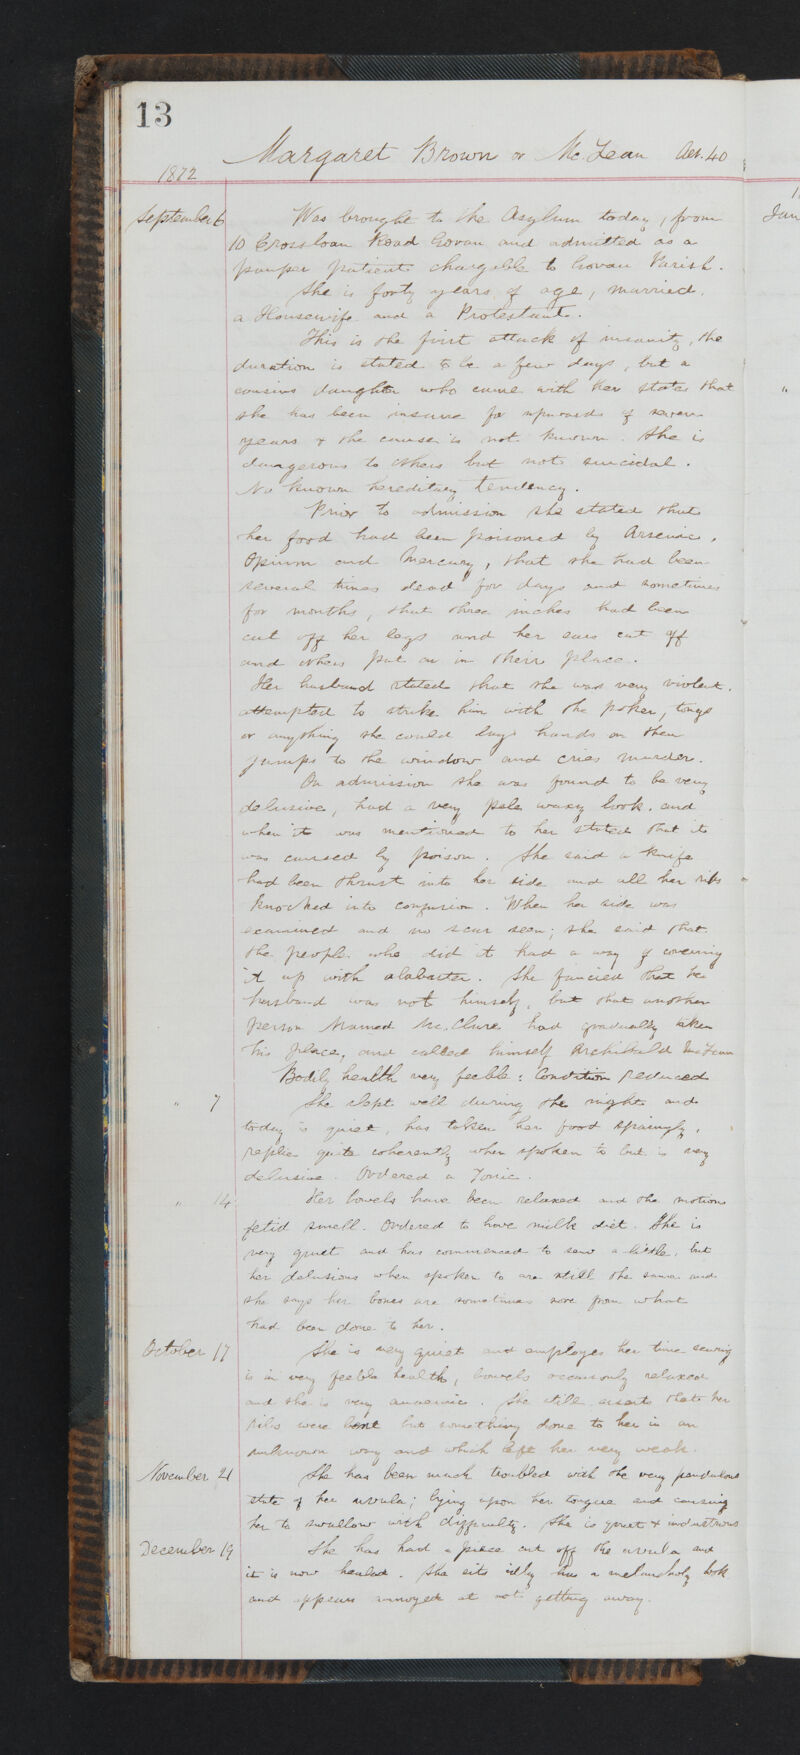 13
Margaret Brown or McLean Aet. 40
1872
September 6 Was brought to the Asylum today, from
10 Crossloan Road Govan and admitted as a
pauper patient chargable to Govan Parish.
She is forty years of age, married,
a Housewife and a Protestant.
This is the first attack of insanity, the
duration is stated to be a few days, but a
cousins daughter who came with her states that
she has been insane for upwards of seven
years & the cause is not known. She is
dangerous to others but not suicidal.
No known hereditary tendency.
Prior to admission she stated that
her food had been poisoned by Arsenic,
Opium and Mercury, that she had been
several times dead for days and sometimes
for months, that three inches had been
cut off her legs and her ears cut off
and others put on in their place.
Her husband stated that she was very violent,
attempted to strike him with the poker, tongs
or anything she could lay hands on then
jumps to the window and cries murder.
On admission she was found to be very
delusive, had a very pale waxy look, and
when it was mentioned to her stated that it
was caused by poison. She said a knife
had been thrust into her side and all her ribs
knocked into confusion. When her side was
examined and no scar seen; she said that
the people who did it had a way of covering
it up with alabaster. She fancied that her
husband was not himself, but that another
person named McClure had gradually taken
his place, and called himself Archibald McLean
Bodily health very feeble: Condition reduced
" 7 She slept well during the night and
today is quiet, has taken her food sparingly,
replies quite coherently when spoken to but is very
delusive. Ordered a Tonic.
" 14 Her bowels have been relaxed and the motions
fetid smell. Ordered to have milk diet. She is
very quiet and has commenced to sew a little, but
her delusions when spoken to are still the same and
she says her bones are sometimes sore from what
had been done to her.
October 17 She is very quiet and employes her time sewing
is in very feeble health, bowels occasionly relaxed
and she is very anaemic. She still asserts that her
ribs were bent but something done to her in an
unknown way and which left her very weak.
November 21 She has been much troubled with the very pendulous
state of her uvula; lying upon her tongue and causing
her to swallow with difficulty. She is quiet & industrious
December 19 She has had a piece cut off the uvula and
it is now healed. She sits idly has a melancholy look
and appears annoyed at not getting away.
Jan
"